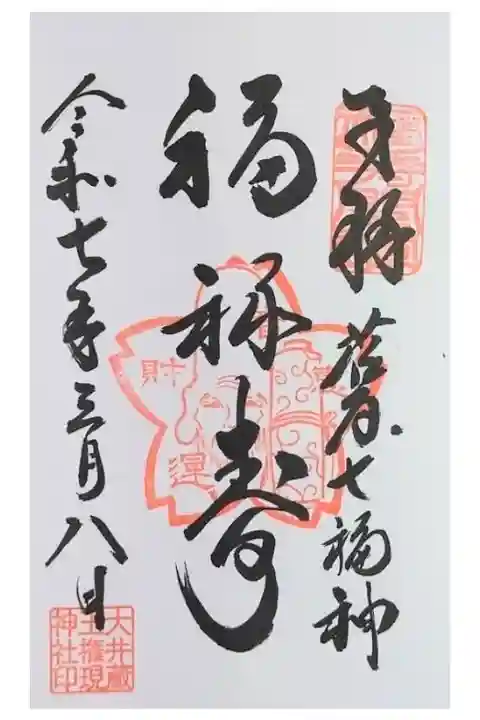 奉拝 蔵七福神
福禄寿
令和七年三月八日
財運
大井蔵
王権現
神社印